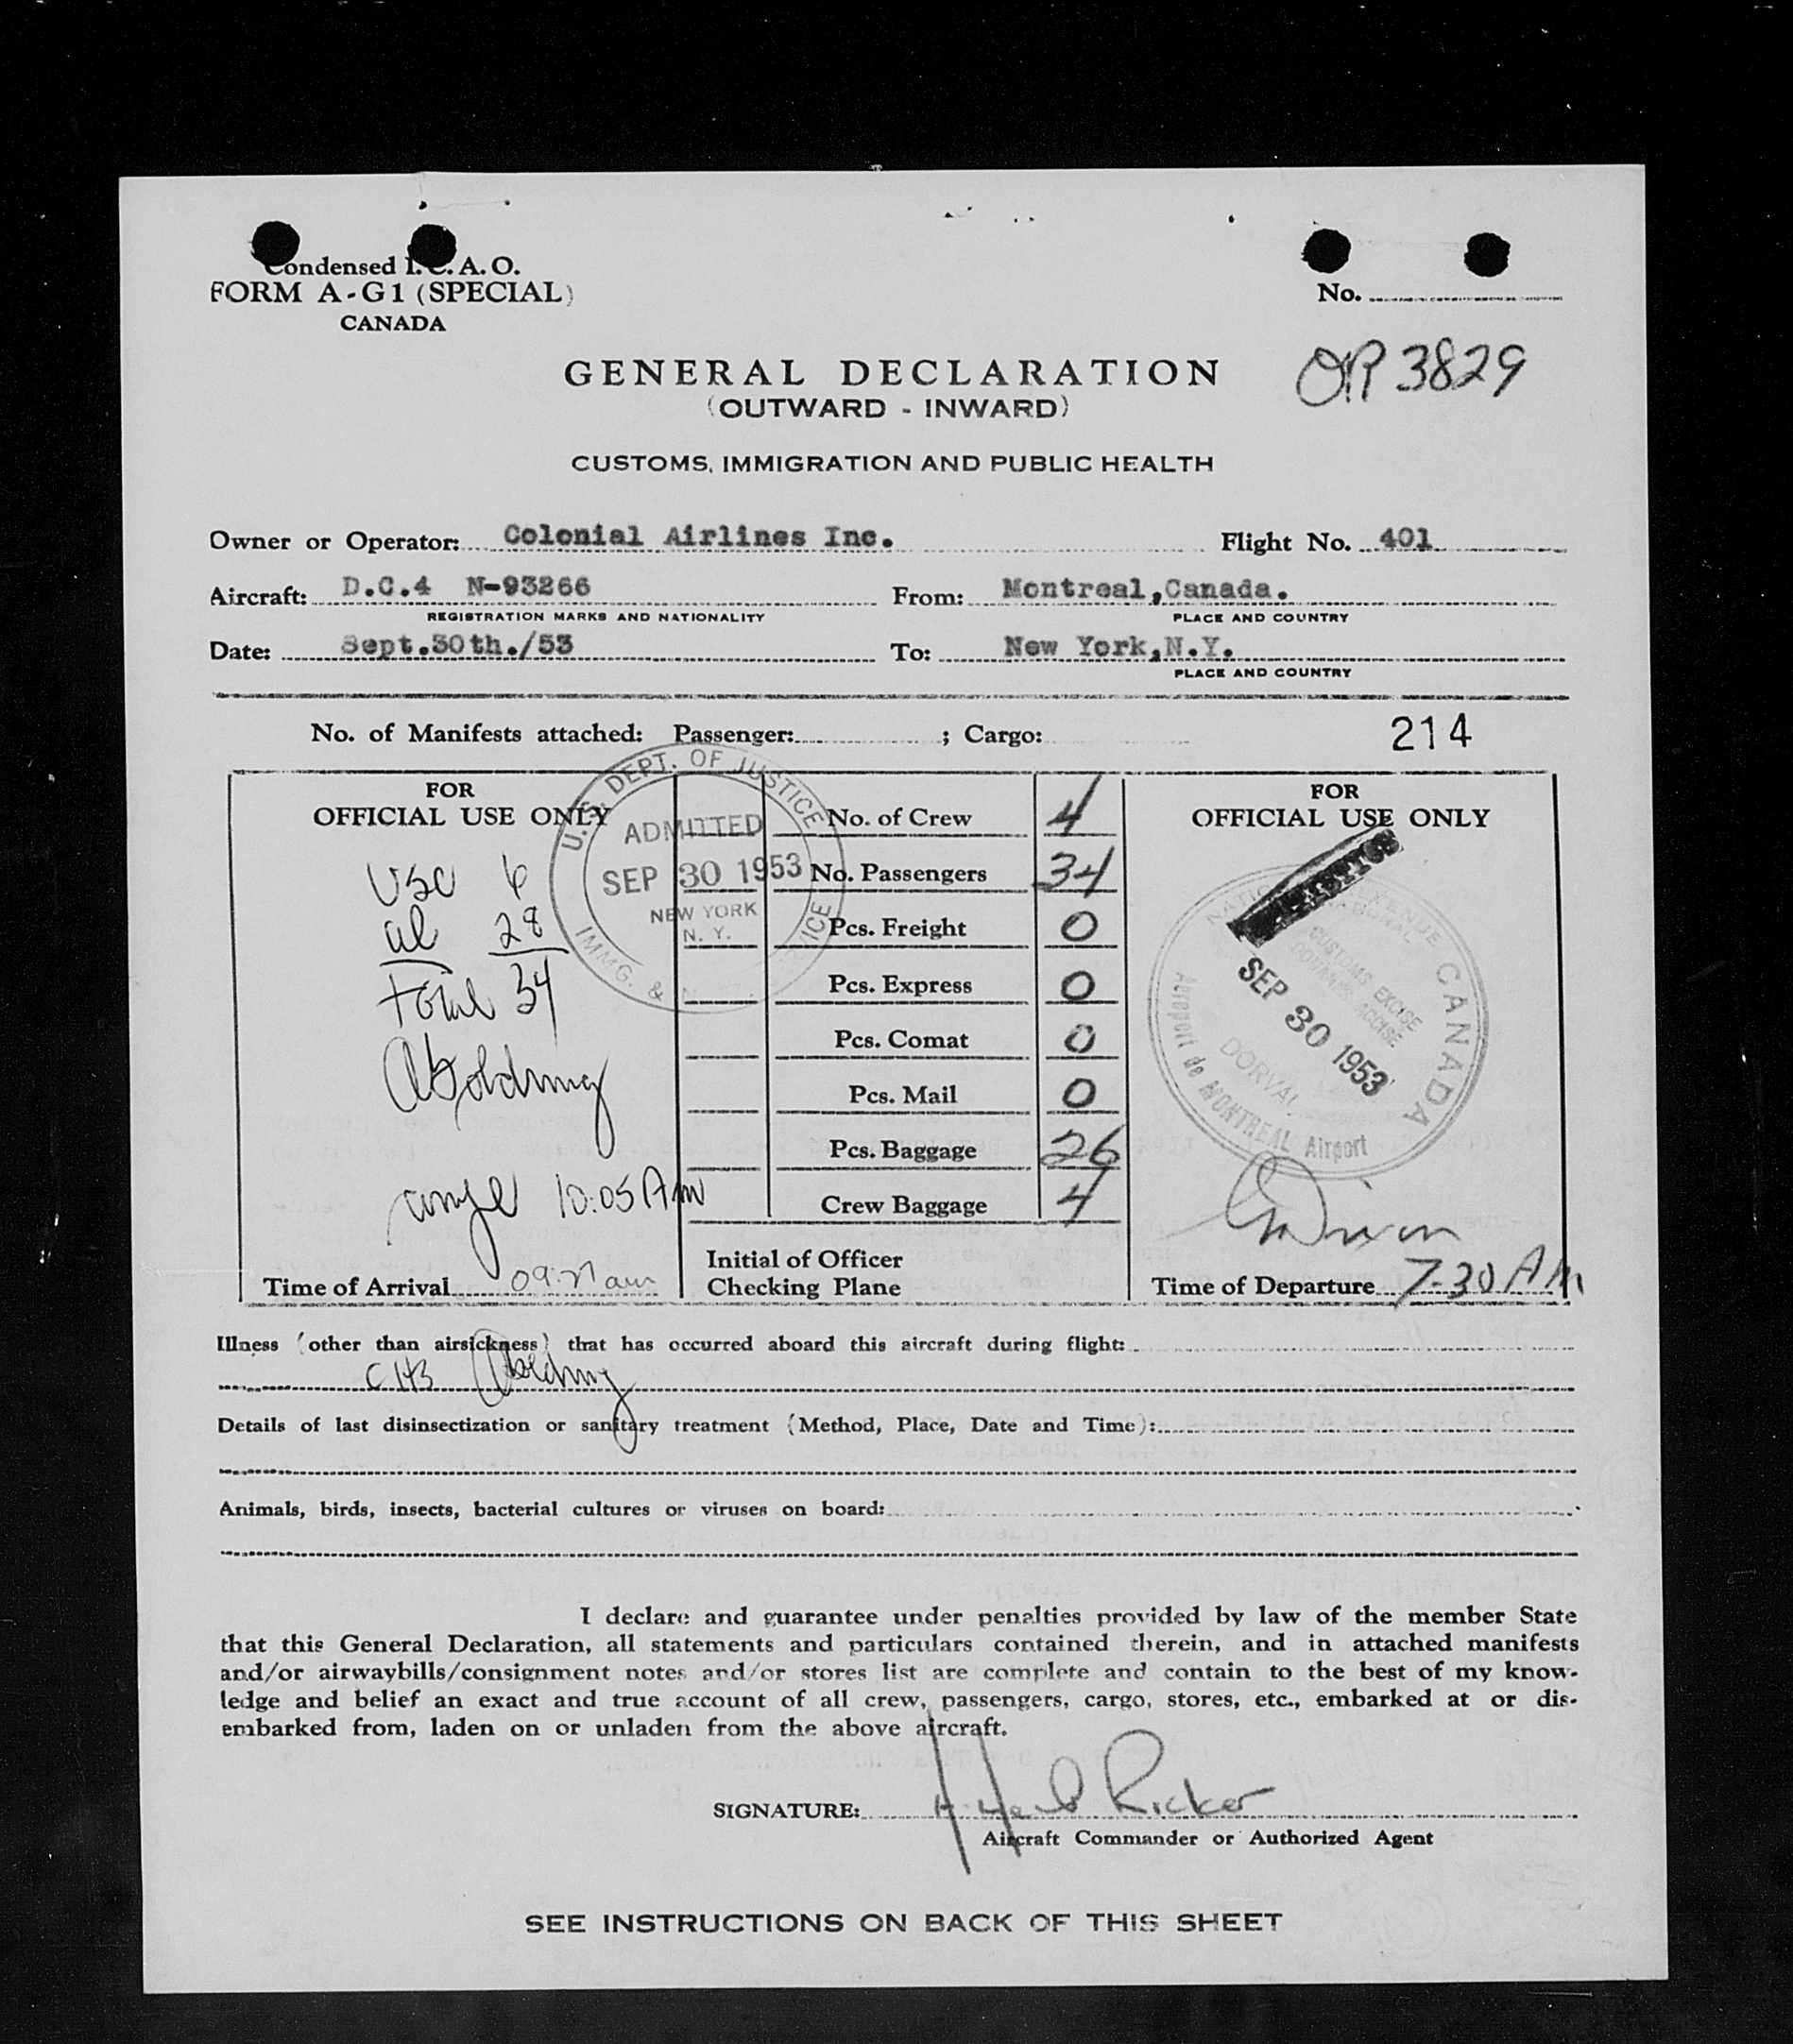 Condensed I.C.A.O.
FORM A-G1 (SPECIAL)
CANADA
No.
OR 3829
GENERAL DECLARATION
(OUTWARD - INWARD)
CUSTOMS, IMMIGRATION AND PUBLIC HEALTH
Owner or Operator: Colonial Airlines Inc. Flight No. 401
Aircraft: D.C.4 N-93266 From: Montreal,Canada.
REGISTRATION MARKS AND NATIONALITY PLACE AND COUNTRY
Date: Sept.30th./53 To: New York,N.Y.
PLACE AND COUNTRY
No. of Manifests attached: Passenger: ; Cargo: 214
FOR
OFFICIAL USE ONLY
USC 6
al 28
Total 34
10:05 AM
Time of Arrival
U.S. DEPT. OF JUSTICE
ADMITTED
SEP 30 1953
NEW YORK
N. Y.
IMMG. &
No. of Crew 4
No. Passengers 34
Pcs. Freight 0
Pcs. Express 0
Pcs. Comat 0
Pcs. Mail 0
Pcs. Baggage 26
Crew Baggage 4
Initial of Officer
Checking Plane
FOR
OFFICIAL USE ONLY
CANADA
CUSTOMS EXCISE
SEP 30 1953
DORVAL
Aéroport de MONTREAL Airport
Time of Departure 7-30 AM
Illness (other than airsickness) that has occurred aboard this aircraft during flight:
Details of last disinsectization or sanitary treatment (Method, Place, Date and Time):
Animals, birds, insects, bacterial cultures or viruses on board:
I declare and guarantee under penalties provided by law of the member State
that this General Declaration, all statements and particulars contained therein, and in attached manifests
and/or airwaybills/consignment notes and/or stores list are complete and contain to the best of my know-
ledge and belief an exact and true account of all crew, passengers, cargo, stores, etc., embarked at or dis-
embarked from, laden on or unladen from the above aircraft.
SIGNATURE: Ricker
Aircraft Commander or Authorized Agent
SEE INSTRUCTIONS ON BACK OF THIS SHEET